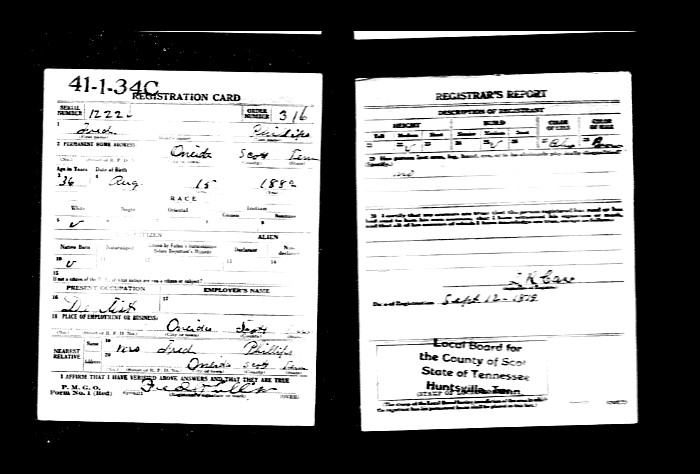 41-1-34C
REGISTRATION CARD
SERIAL NUMBER 1222
ORDER NUMBER 316
1 Fred Phillips
2 PERMANENT HOME ADDRESS
Oneida Scott Tenn
Age in Years Date of Birth
3 36 4 Aug. 15 1882
RACE
White Negro Oriental Indian
Citizen Noncitizen
5 v 6 7 8 9
CITIZEN ALIEN
Native Born Naturalized Citizen by Father's Naturalization Before Registrant's Majority Declarant Non-declarant
10 v 11 12 13 14
15
If not a citizen of the U. S., of what nation are you a citizen or subject?
PRESENT OCCUPATION EMPLOYER'S NAME
16 Dentist 17
18 PLACE OF EMPLOYMENT OR BUSINESS:
Oneida Scott
(No.) (Street or R. F. D. No.) (City or town) (County) (State)
NEAREST RELATIVE
Name 19 Mrs Fred Phillips
Address 20 Oneida Scott Tenn
I AFFIRM THAT I HAVE VERIFIED ABOVE ANSWERS AND THAT THEY ARE TRUE
P. M. G. O.
Form No. 1 (Red)
Fred Phillips
(Registrant's signature or mark) (OVER)
REGISTRAR'S REPORT
DESCRIPTION OF REGISTRANT
HEIGHT BUILD COLOR OF EYES COLOR OF HAIR
Tall Medium Short Slender Medium Stout
21 22 v 23 24 25 v 26 27 28
29 Has person lost arm, leg, hand, eye, or is he obviously physically disqualified?
(Specify.)
no
30 I certify that my answers are true; that the person registered has read or has had read to him his own answers; that I have witnessed his signature or mark, and that all of his answers of which I have knowledge are true, except as follows:
Date of Registration Sept 12-1918
Local Board for
the County of Scot
State of Tennessee
Huntsville, Tenn.
(STAMP OF LOCAL BOARD)